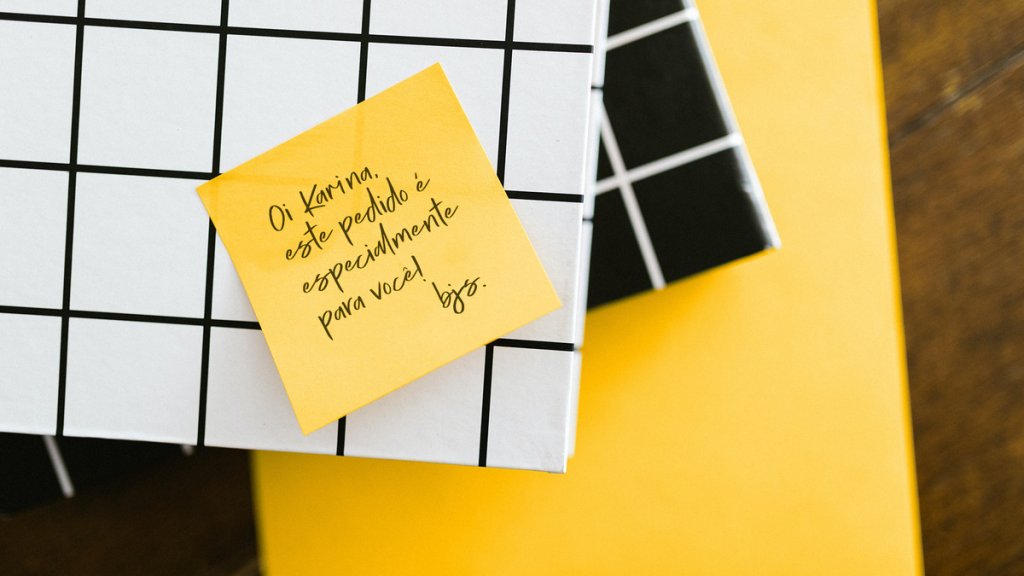 Oi Karina,
este pedido é
especialmente
para você!
bjs.